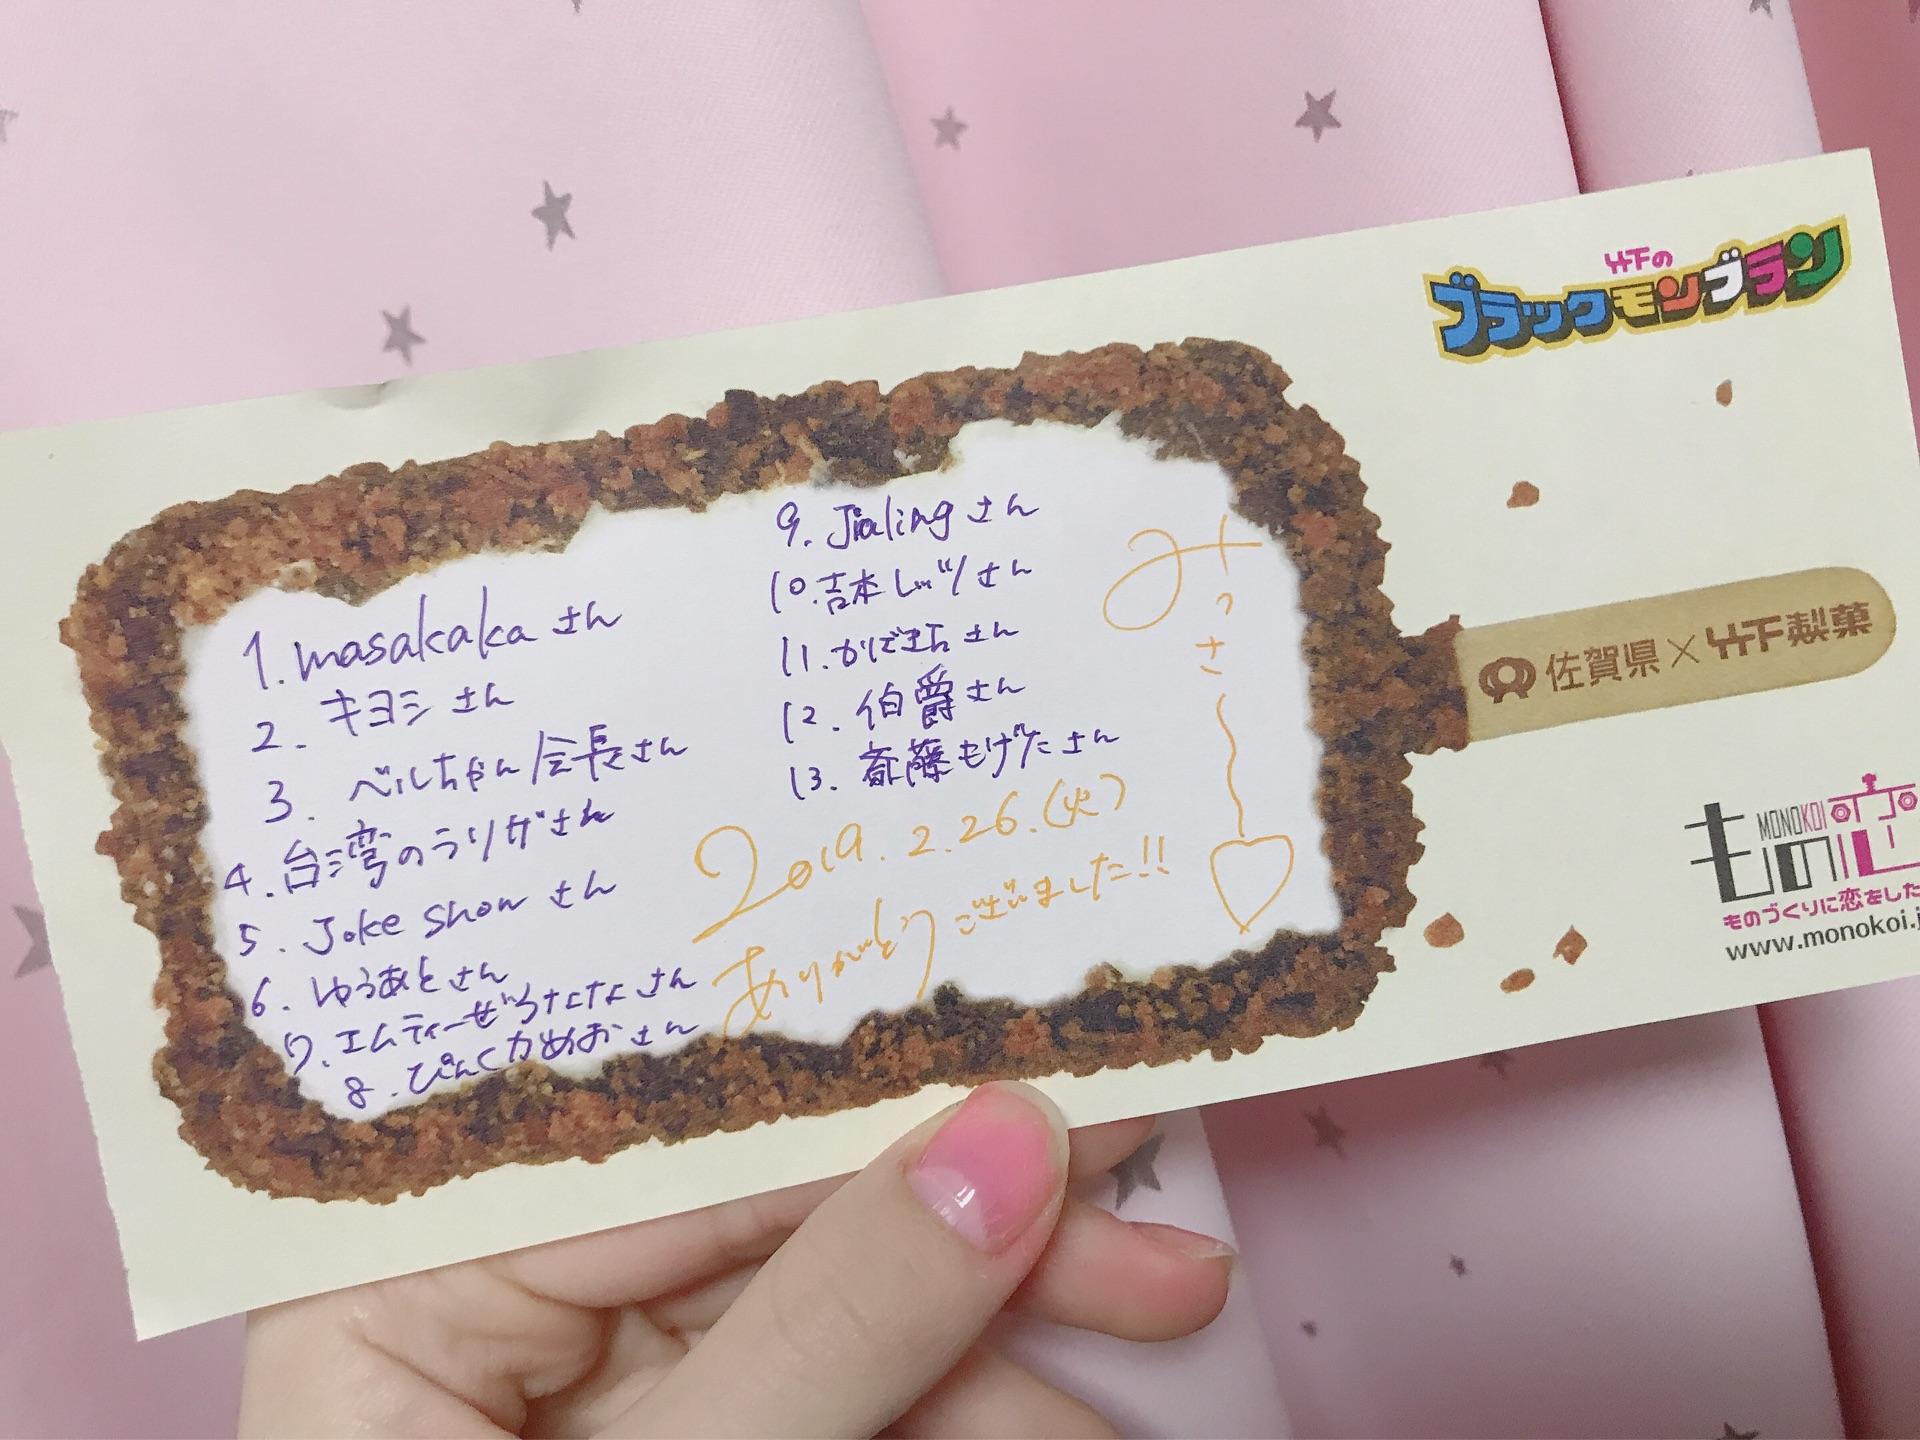 竹下の
ブラックモンブラン
佐賀県×竹下製菓
MONOKOI
もの恋
ものづくりに恋をした
www.monokoi.j
1. masakakaさん
2. キヨシさん
3. ベルちゃん会長さん
4. 台湾のラリガさん
5. Joke showさん
6. ゆうあとさん
7. エムティーぜろナナさん
8. ぴんくかめおさん
9. Jialingさん
10. 吉本しゅツさん
11. かにざきちさん
12. 伯爵さん
13. 斎藤もげたさん
みっさ〜♡
2019.2.26.(火)
ありがとうございました!!